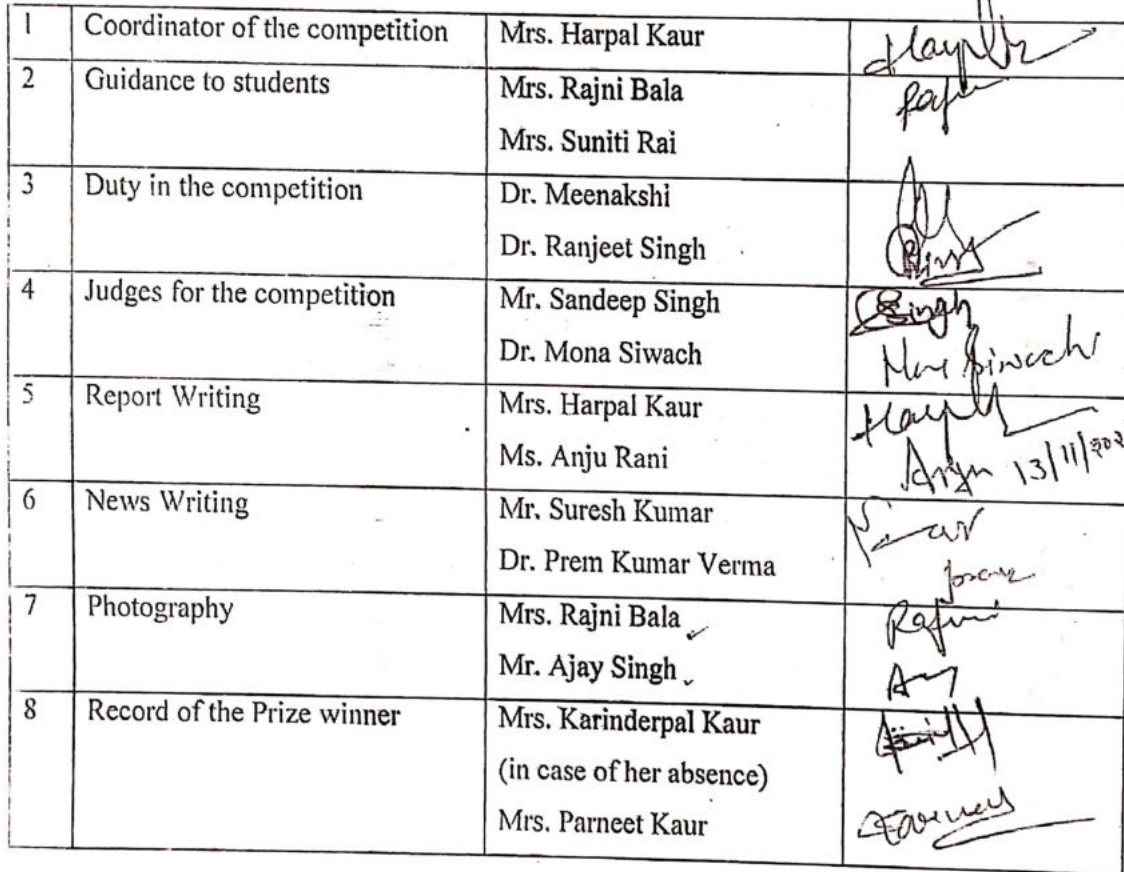 1 Coordinator of the competition Mrs. Harpal Kaur
2 Guidance to students Mrs. Rajni Bala
Mrs. Suniti Rai
3 Duty in the competition Dr. Meenakshi
Dr. Ranjeet Singh
4 Judges for the competition Mr. Sandeep Singh Singh
Dr. Mona Siwach Siwach
5 Report Writing Mrs. Harpal Kaur
Ms. Anju Rani 13/11/
6 News Writing Mr. Suresh Kumar
Dr. Prem Kumar Verma
7 Photography Mrs. Rajni Bala Rajni
Mr. Ajay Singh
8 Record of the Prize winner Mrs. Karinderpal Kaur
(in case of her absence)
Mrs. Parneet Kaur